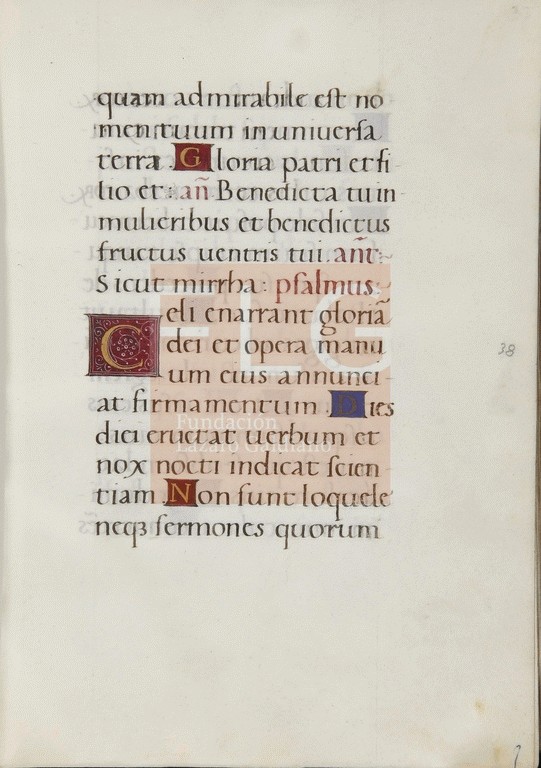 quam admirabile est no
men tuum in universa
terra. Gloria patri et fi
lio et: añ Benedicta tu in
mulieribus et benedictus
fructus ventris tui. añt:
Sicut mirrha: psalmus:
Celi enarrant gloriã
dei et opera manu
um eius annunci
at firmamentum Dies
diei eructat verbum et
nox nocti indicat scien
tiam. Non sunt loquele
neqꝫ sermones quorum
38
FLG
Fundación
Lázaro Galdiano